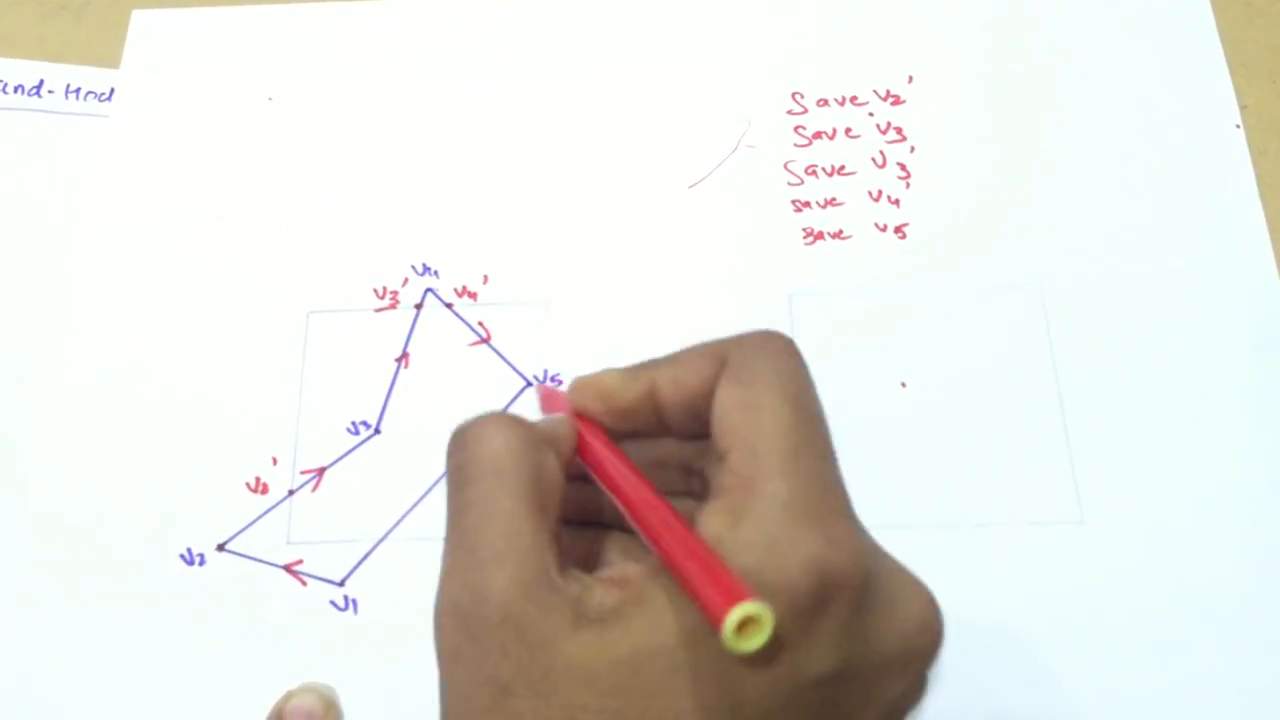 and-Hod
Save V2'
Save V3
Save V3'
save V4'
save V5
V4
V3' V4'
V5
V3
V2'
V2
V1